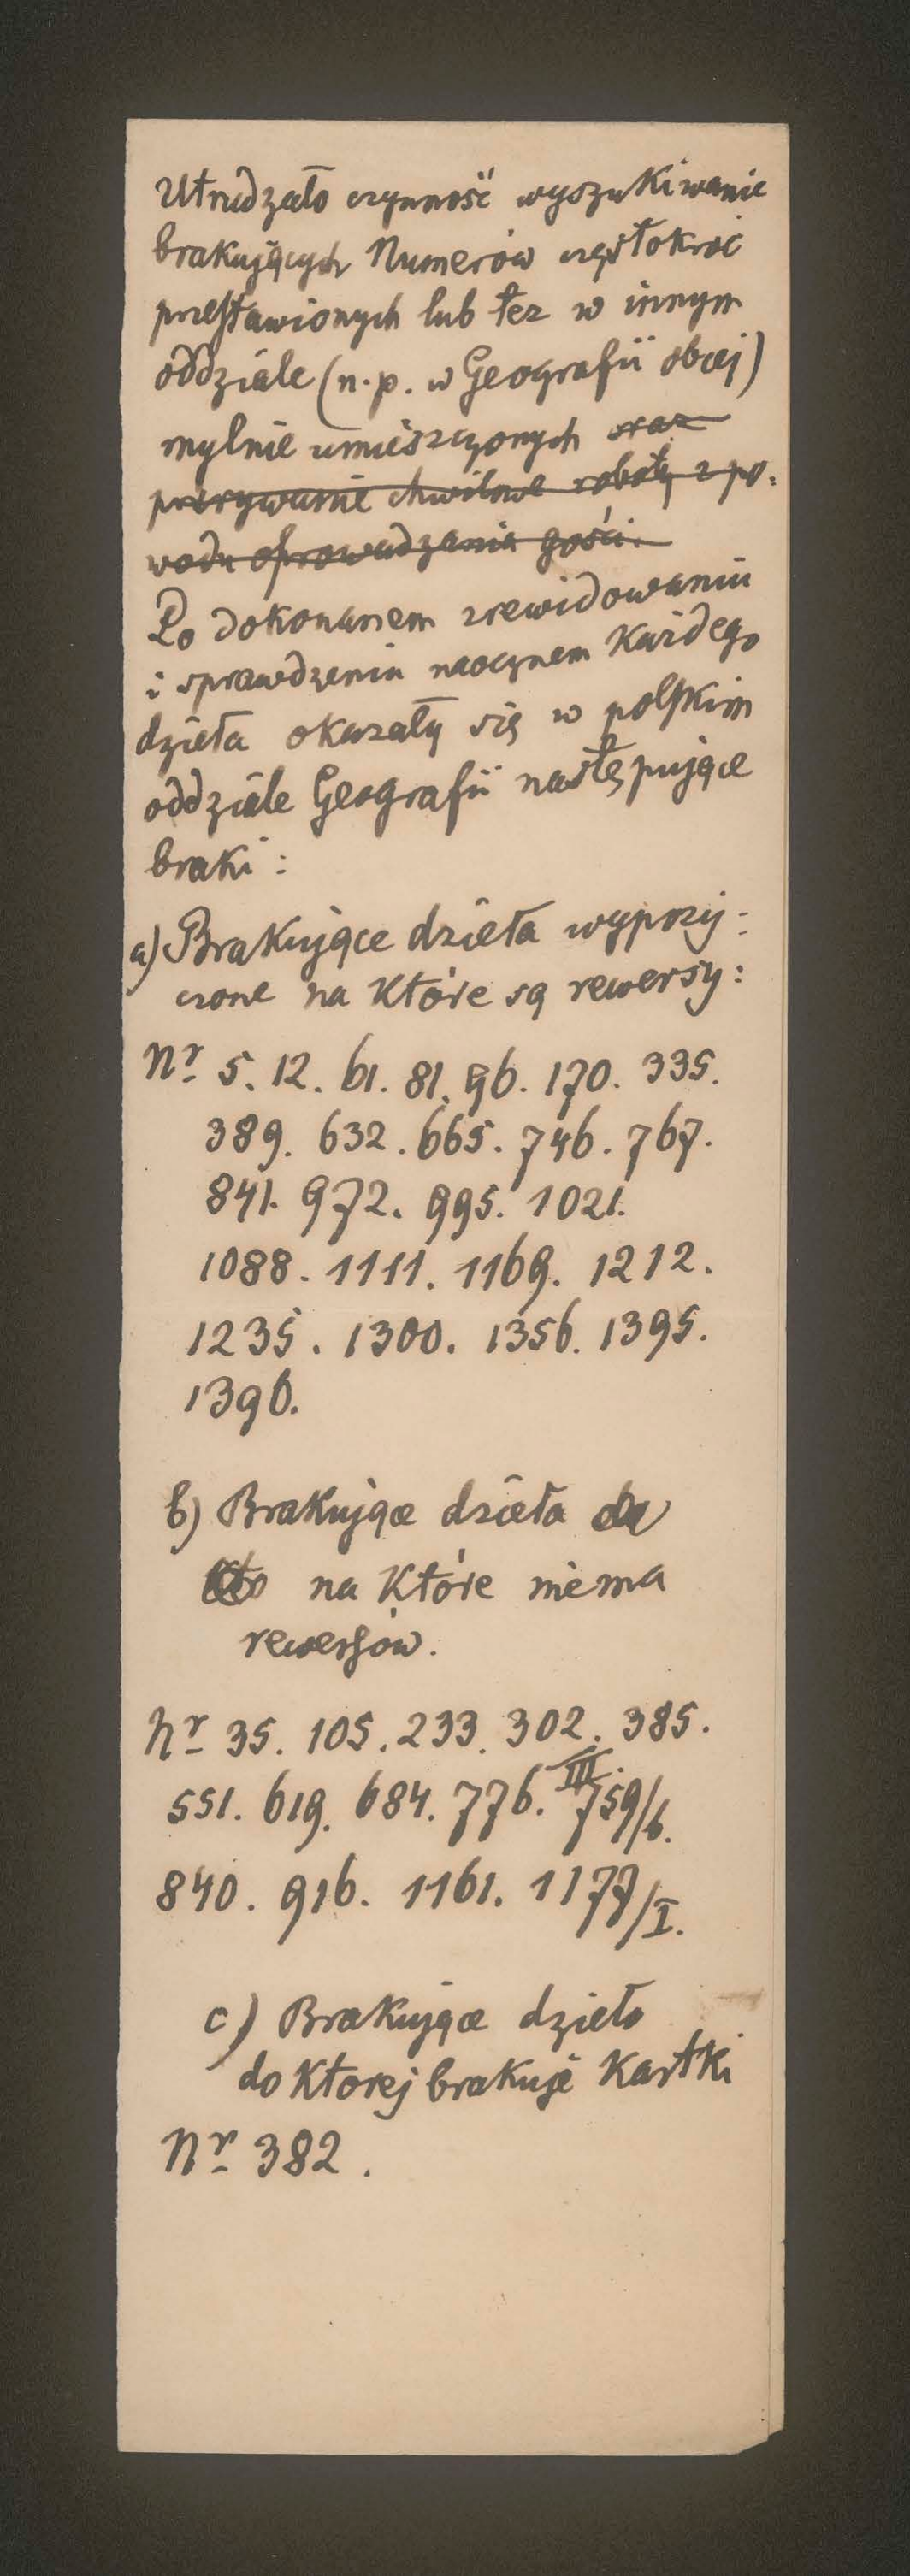 Utrudzało czynność wyszukiwanie
brakujących Numerów częstokroć
przestawionych lub też w innym
oddziale (n.p. w Geografii obcej)
mylnie umieszczonych oraz
przerywanie chwilowe roboty z po-
wodu oprowadzania gości.
Po dokonanem zrewidowaniu
i sprawdzeniu naocznem Każdego
dzieła okazały się w polskim
oddziale Geografii następujące
braki:
a) Brakujące dzieła wypoży-
czone na Które są rewersy:
Nr 5. 12. 61. 81. 96. 170. 335.
389. 632. 665. 746. 767.
841. 972. 995. 1021.
1088. 1111. 1169. 1212.
1235. 1300. 1356. 1395.
1396.
b) Brakujące dzieła
na Które niema
rewersów.
Nr 35. 105. 233. 302. 385.
551. 619. 684. 776. III. 759/b.
840. 916. 1161. 1177/I.
c) Brakujące dzieło
do Ktorej brakuje Kartki
Nr 382.